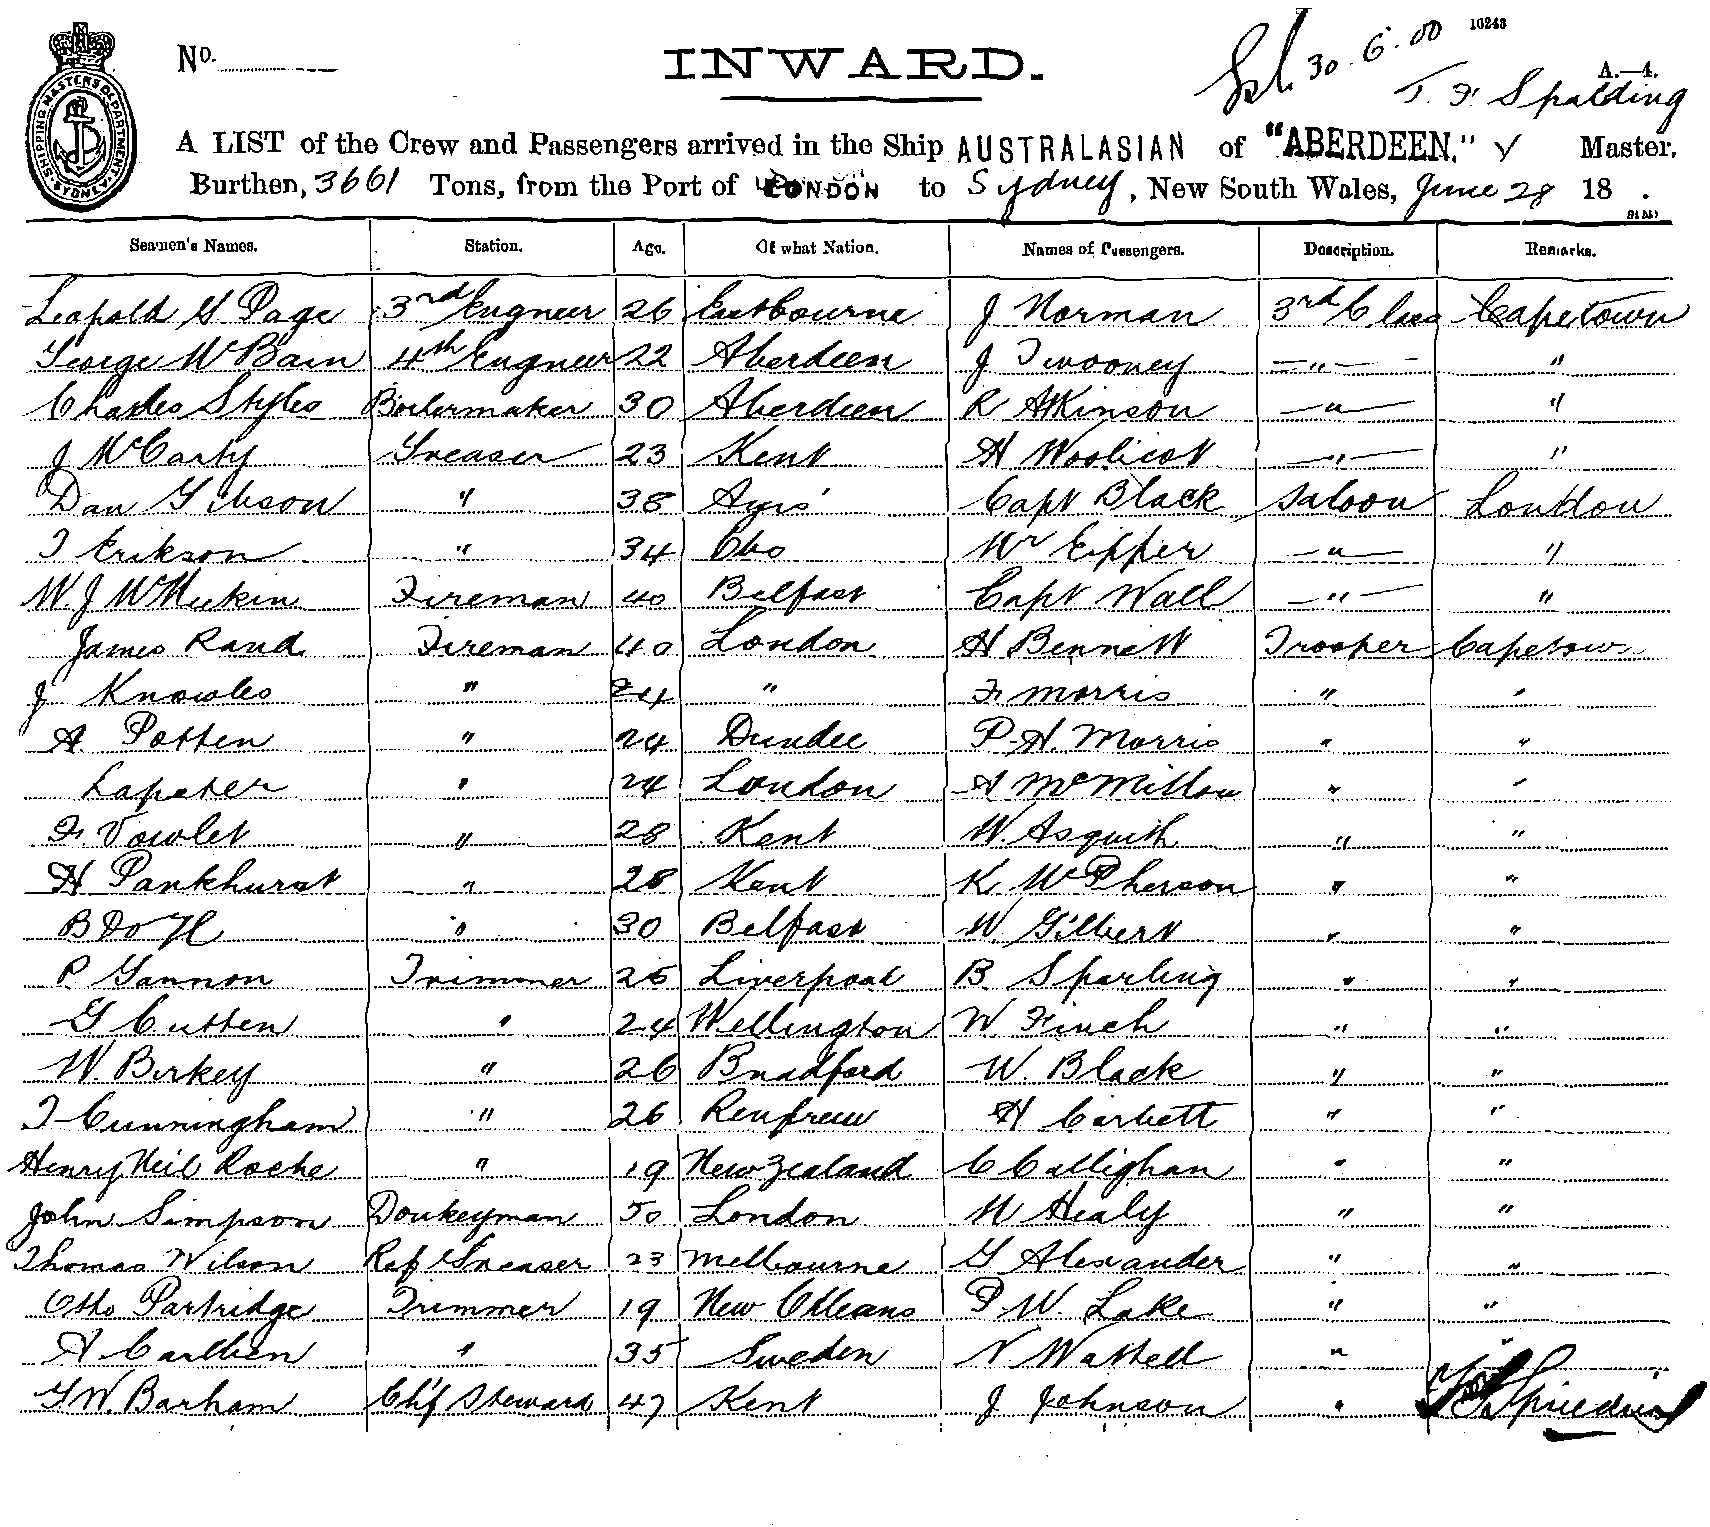 SHIPPING MASTERS DEPARTMENT
No.
INWARD.
30.6.00
10243
A.—4.
J. F. Spalding
A LIST of the Crew and Passengers arrived in the Ship AUSTRALASIAN of "ABERDEEN," Master,
Burthen, 3661 Tons, from the Port of LONDON to Sydney, New South Wales, June 28 18 .
Seamen's Names. Station. Age. Of what Nation. Names of Passengers. Description. Remarks.
Leopold G Page 3rd Engneer 26 Eastbourne J Norman 3rd Class Capetown
George McBain 4th Engneer 22 Aberdeen J Twooney —"— "
Charles Styles Boilermaker 30 Aberdeen R Atkinson —"— "
J McCarty Greaser 23 Kent H Woolicot —"— "
Dan Gibson " 38 Ayrs' Capt Black Saloon London
J Erikson " 34 Mr Eipper —"— "
W. J McMeekin Fireman 40 Belfast Capt Wall —"— "
James Rand Fireman 40 London H Bennett Trooper Capetown
J Knowles " 24 " F. Morris " "
A Potten " 24 Dundee P. H. Morris " "
Lapeter " 24 London A McMillan " "
F. Vowlet " 28 Kent W. Asquith " "
H Pankhurst " 28 Kent K McPherson " "
B " 30 Belfast W. Gilbert " "
P Gannon Trimmer 25 Liverpool B Sparling " "
G Cutten " 24 Wellington W Finch " "
W. Birkey " 26 Bradford W. Black " "
J Cunningham " 26 Renfrew H Corbett " "
Henry Neil Roche " 19 New Zealand C Callighan " "
John Simpson Donkeyman 50 London M Healy " "
Thomas Wilson Ref Greaser 23 Melbourne G Alexander " "
Otto Partridge Trimmer 19 New Orleans P. W. Lake " "
A Carlben " 35 Sweden V Wattell " "
G W. Barham Chif Steward 47 Kent J Johnson "